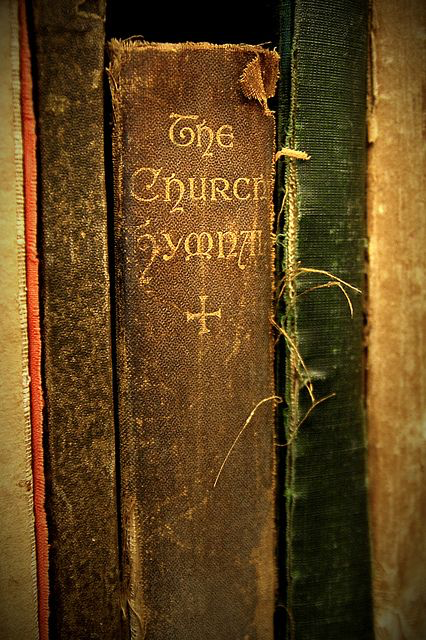 The
Church
Hymnal